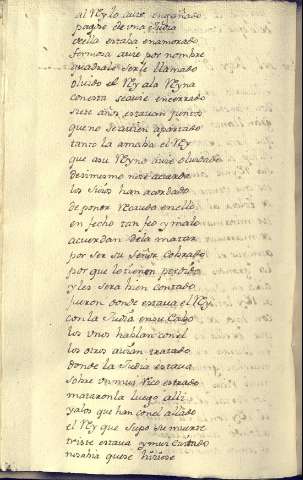 al Rey lo avie engañado
pagose de una Iudia
della estaba enamorado
fermosa avie por nombre
quadrale ser le llamado
olvido el Rey ala Reyna
con esta se avie encerrado
siete años estavan juntos
que no se avien apartado
tanto la amaba el Rey
que asu Reyno avie olvidado
de si mismo no se acuerda
los Suios han acordado
de poner recaudo en ello
en fecho tan feo y malo
acuerdan de la matar
por ser su Señor cobrado
por que lo tienen perdido
y les sera bien contado
fueron donde estava el Rey
con la Iudia en su cabo
los unos hablan con el
los otros avian tratado
donde la Iudia estava
sobre un muy rico estrado
mataronla luego alli
y alos que han con el al lado
el Rey que supo su muerte
triste estava y muy cuitado
no sabia que se hiziese